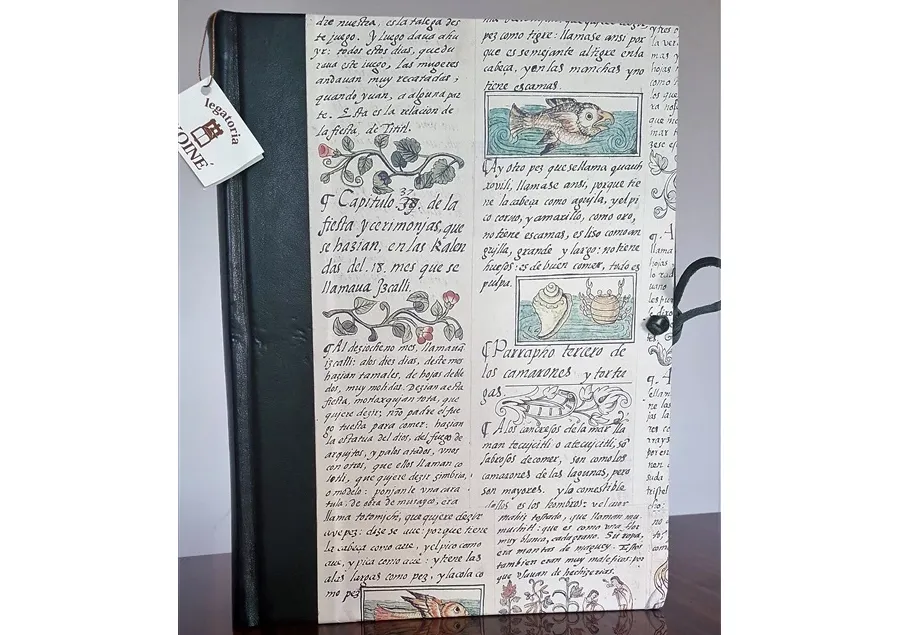 legatoria
KOINÉ
dre nuestra, es la talega des
te juego. Y luego daua a hu
yr: todos estos dias, que du
raua este juego, las mugeres
andauan muy recatadas,
quando yuan, a alguna par
te. Esta es la relacion de
la fiesta, de Tititl.
¶ Capitulo. 37. 38. de la
fiesta y cerimonjas, que
se hazian, en las Kalen
das del .18. mes que se
llamaua Jzcalli.
¶ Al deziocheno mes, llamauā
izcalli: alos diez dias, deste mes
hazian tamales, de hojas de ble
dos, muy molidos. Dezian a esta
fiesta, motlaxqujan tota, que
qujere dezir; nr̃o padre el fue
go tuesta para comer: hazian
la estatua del dios, del fuego de
arqujtos, y palos atados, vnos
con otros, que ellos llaman co
lotli, que qujere dezir zimbria,
o modelo: ponjanle vna cara
tula: de obra de musayco, era
llama totomjchi, que qujere dezir
aue pez: dize se aue: porque tiene
la cabeça como aue, y el pico como
aue, y pica como aue: y tiene las
alas largas como pez, y la cola co
mo pez
pez como tigre: llamase ansi por
que es semejante al tigre en la
cabeça, y en las manchas y no
tiene escamas.
¶ Ay otro pez que se llama quauh
xovili, llamase ansi, porque tie
ne la cabeça como aguila, y el pi
co corvo, y amarillo, como oro,
no tiene escamas, es liso como an
guilla, grande y largo: no tiene
huesos: es de buen comer, todo es
pulpa.
¶ Parrapho tercero de
los camarones y tortu
gas
¶ A los cangrejos de la mar lla
man tecujcitli o atecujcitli, sō
sabrosos de comer, son como los
camarones de las lagunas, pero
son mayores. y lo comestible
dellos es los hombros: vel uor
mahiz tostado, que llaman mu
muchitl: que es como vna flor
muy blanca, cada grano. Su ropa,
era mantas de maguey. Estos
tambien eran muy maleficos por
que vsauan de hechizerias.